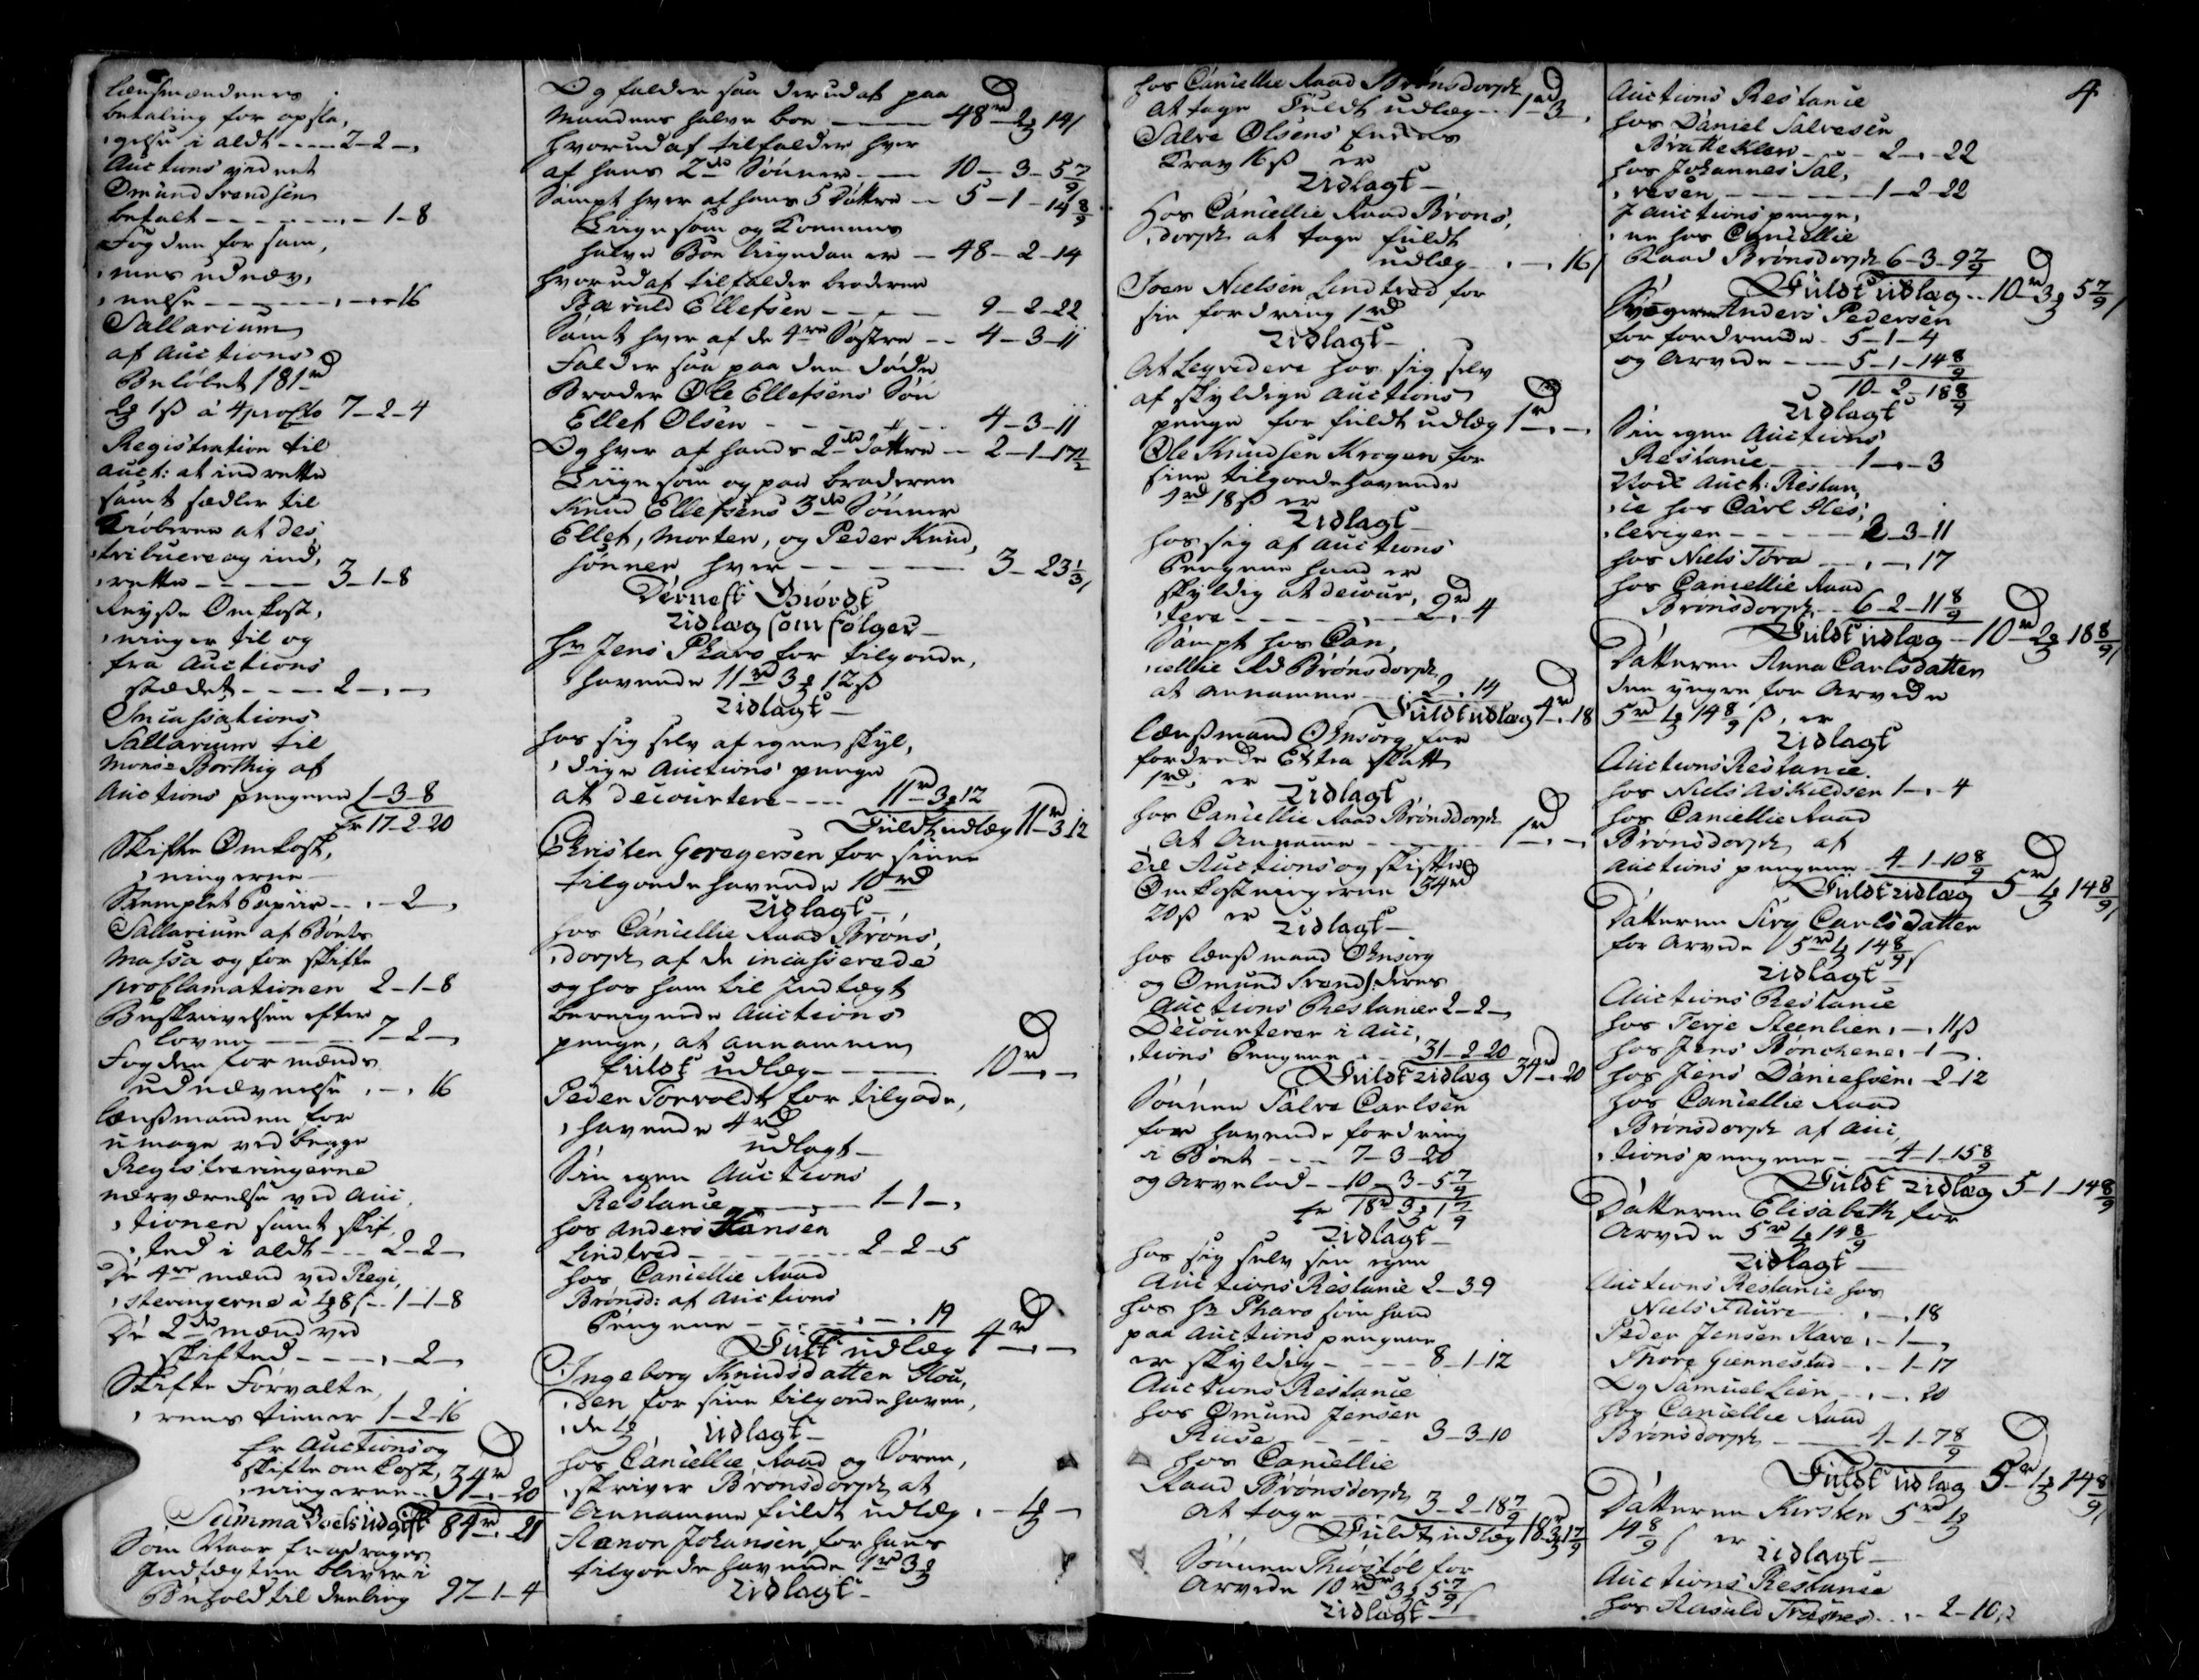 lænsmændenes
betaling for opsla,
gelse i aldt ---- 2-2-,
Auctions vidnet
Omund Svendsen
betalt - - - - - 1-8
Fogden for sam,
mes udnæv,
nelse - - - - - 16
Sallarium
af Auctions
Beløbet 181 rd
2 ₰ 1ß á 4 pro Cto 7-2-4
Registration til
auct: at indrette
samt sædler til
Kiøberne at des,
tribuere og ind,
rette - - - - 3-1-8
Reyse Omkost,
ninger til og
fra Auctions
stædet - - - - 2-,-,
Incassations
Sallarium til
Monsr Borthig af
Auctions pengene 1-3-8
Er 17-2-20
Skifte Omkost,
ningerne
Stemplet Papiir - - , -2-,
Sallarium af Boets
Massa og for skifte
proclamationen 2-1-8
Beskrivelsen efter
loven - - - 7-2-,
Fogden for mænds
udnævnelse , -, 16
lænßmanden for
umage ved begge
Registreringerne
nærværelse ved Auc,
tionen samt skif,
ted i aldt - - - 2-2-,
De 4re mænd ved Regi,
streringerne á 1 ₰ 8 ß - - 1-1-8
De 2de mænd ved
skifted - - - , -2-,
Skifte Forvalte,
rens tiener 1-2-16
Er Auctions og
skifte omkost,
ningerne - - 34 rd - , - 20
Summa Boets udgift 84 rd , 21
Som naar fradrages
Indtægten bliver i
Behold til deeling 97-1-4
Og falder saa derudaf paa
Mandens halve boe - - - 48 rd 2 ₰ 14 /
hvorudaf tilfalder hver
af hans 2de Sønner - - - 10-3-5 7/9
Sampt hver af hans 5 døttre - - 5-1-14 8/9
Liigesom og Konens
halve Boe liigedan er - 48-2-14
hvorudaf tilfalder broderen
Baruld Ellefsen - - - - 9-2-22
Samt hver af de 4re Søstre - - 4-3-11
Falder saa paa den døde
Broder Ole Ellefsens Søn
Ellef Olsen - - - - - 4-3-11
Og hver af hands 2de døttre - - 2-1-17 1/2
Liigesom og paa broderen
Knud Ellefsens 3de Sønner
Ellef, Morten, og Peder Knud,
sønner hver - - - - - 3-23 1/3 /
Dernest Giordt
Udlæg som følger
Hr Jens Pharo for tilgode,
havende 11 rd 3 ₰ 12 ß
Udlagt
hos sig selv af egen skyl,
dige Auctions penge
at decourtere - - - - 11 rd 3 ₰ 12
Fuldt udlæg 11 rd 3 12
Christen Gregersen for sinne
tilgoedehavende 10 rd
Udlagt
hos Cancellie Raad Brøns,
dorph af de incasserede
og hos ham til Indtægt
bereignede Auctions
penge, at annamme
fuldt udlæg - - - - 10 rd - , -
Peder Torvoldt for tilgode,
havende 4 rd
udlagt
Sin egen Auctions
Restance - - - - 1-1-,
hos Anders Hansen
Lindtved - - - - - - 2-2-5
hos Cancellie Raad
Brønsd: af Auctions
Pengene - - - - - , - , 19
Fult udlæg 4 rd - , -
Ingeborg Knudsdatter Hou,
den for sine tilgoedehaven,
de 1 ₰ udlagt
hos Cancellie Raad og Soren,
skriver Brønsdorph at
annamme fuldt udlæg , - 1 ₰ -
Aanon Johansen for hans
tilgoede havende 1 rd 3 ₰
Udlagt
hos Cancellie Raad Brønsdorph
at tage Fuldt udlæg - - 1 rd 3 ,
Salve Olsens Enkes
Krav 16 ß er
Udlagt
Hos Cancellie Raad Brøns,
dorph at tage fuldt
udlæg , - , 16 /
Joen Nielsen Lindtved for
sin fordring 1 rd
Udlagt
At Leqvidere hos sig selv
af skyldige Auctions
penge for fuldt udlæg 1 rd - , -
Ole Knudsen Krogen for
sine tilgoedehavende
4 rd 18 ß er
Udlagt
hos sig af Auctions
Pengene hand er
skyldig at decour,
tere - - - - - 2 rd , 4
Sampt hos Can,
cellie Rd Brønsdorph
at annamme - - 2 , 14
Fuldt udlæg 4 rd , 18
lænßmand Ohnsorg for
fordrede Extra skatt
1 rd, er Udlagt
hos Cancellie Raad Brønsdorph
at Annamme - - - - 1 rd - , -
Til Auctions og skifte
Omkostningerne 34 rd
20 ß er Udlagt
hos lænßmand Ohnsorg
og Omund Svends: deres
Auctions Restancer 2-2-,
Decourterer i Auc,
tions Pengene - - 31-2-20
Fuldt udlæg 34 rd , 20
Sønnen Salve Carlsen
for havende fordring
i Boet - - - 7-3-20
og Arvelod - - 10-3-5 7/9
Er 18 rd 3 ₰ 1 7/9
Udlagt
hos sig selv sin egen
Auctions Restance 2-3-9
hos Hr Pharo som hand
paa Auctions pengene
er skyldig - - - - 8-1-12
Auctions Restance
hos Omund Jensen
Ruse - - - - 3-3-10
hos Cancellie
Raad Brønsdorph
at tage - - - 3-2-18 7/9
Fuldt udlæg 18 rd 3 ₰ 1 7/9
Sønnen Thiostøl for
Arvede 10 rd 3 ₰ 5 7/9 ß
Udlagt
4
Auctions Restance
hos Daniel Salvesen
Bratteklev - - - 2-,-22
hos Johannes Sal,
vesen - - - - - 1-2-22
I Auctions penge,
ne hos Cancellie
Raad Brønsdorph 6-3-9 7/9
Fuldt udlæg - - 10 rd 3 ₰ 5 7/9 /
Svogeren Anders Pedersen
for fordrende - 5-1-4
og Arvede - - - 5-1-14 8/9
10-2-18 8/9
Udlagt
Sin egen Auctions
Restance - - - 1-,-3
Nock Auct: Restan,
ce hos Carl Hes,
levigen - - - - - 2-3-11
hos Niels Tora - - , -, 17
hos Cancellie Raad
Brønsdorph - - 6-2-11 8/9
Fuldt udlæg - 10 rd 2 ₰ 18 8/9 /
Datteren Anna Carlsdatter
den yngre for Arvede
5 rd 1 ₰ 14 8/9 ß, er
Udlagt
Auctions Restance
hos Niels Askildsen 1-,-4
hos Cancellie Raad
Brønsdorph af
Auctions pengene - 4-1-10 8/9
Fuldt udlæg 5 rd 1 ₰ 14 8/9 /
Datteren Sirg Carlsdatter
for Arvede 5 rd 1 ₰ 14 8/9 ß
Udlagt
Auctions Restance
hos Terje Steenlien , -, 11 ß
hos Jens Bonchene , -1-,
hos Jens Danielsen , -2-12
hos Cancellie Raad
Brønsdorph af Auc,
tions pengene - - 4-1-15 8/9
Fuldt udlæg 5-1-14 8/9
Datteren Elisabeth for
Arvede 5 rd 1 ₰ 14 8/9
Udlagt
Auctions Restance hos
Niels Faure - - - , -, 18
Peder Jensen Kare , -1-,
Thore Giennestad - , - 1-17
Og Samuel Lien - , -, 20
hos Cancellie Raad
Brønsdorph - - - - 4-1-7 8/9
Fuldt udlæg 5 rd 1 ₰ 14 8/9 /
Datteren Kirsten 5 rd 1 ₰
14 8/9 ß er Udlagt
Auctions Restance
hos Aasuld Trasnes - - , - 2-16